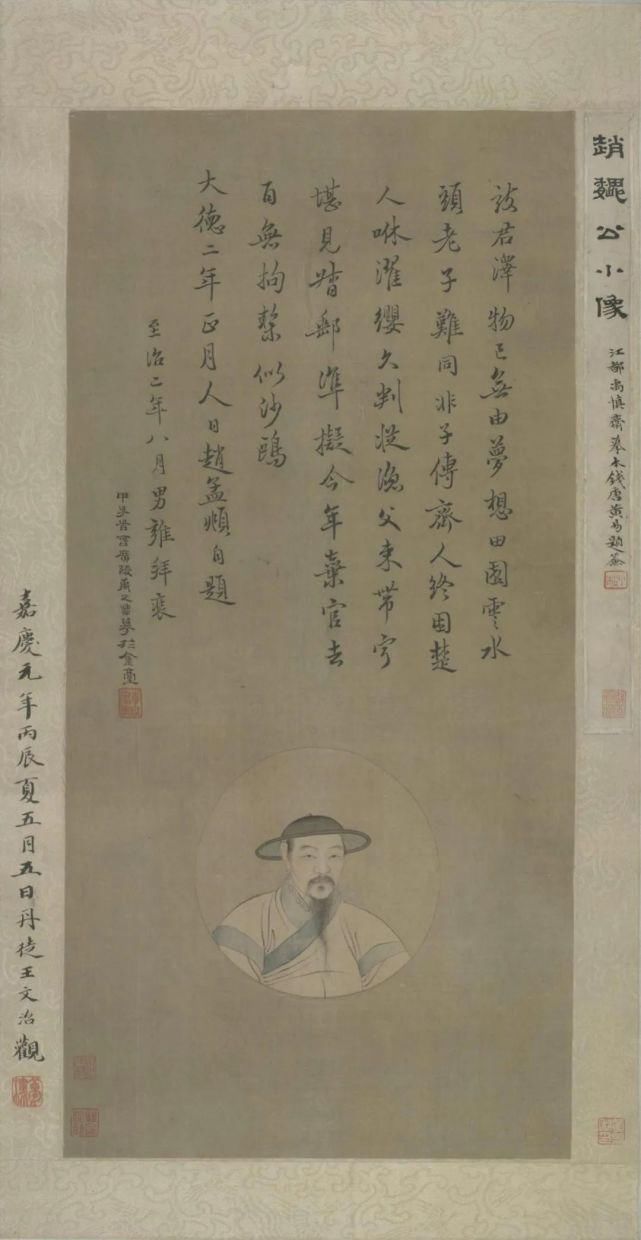 趙魏公小像
江都禹慎齋摹本錢唐黃易題簽
致君澤物已無由夢想田園雲水
頭老子難同非子傳齊人終困楚
人咻濯纓久判從漁父束帶寧
堪見督郵準擬今年棄官去
百無拘繫似沙鷗
大德二年正月人日趙孟頫自題
至治二年八月男雍拜裝
廣陵禹之鼎摹於金臺
嘉慶元年丙辰夏五月五日丹徒王文治觀